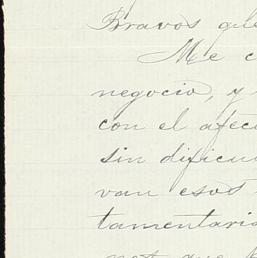 Bravos que
Me c
negocio, y
con el afec
sin dificul
van esos
tamentaria